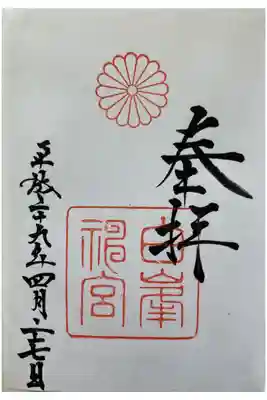 奉拝
白峯
神宮
平成二十九年四月二七日